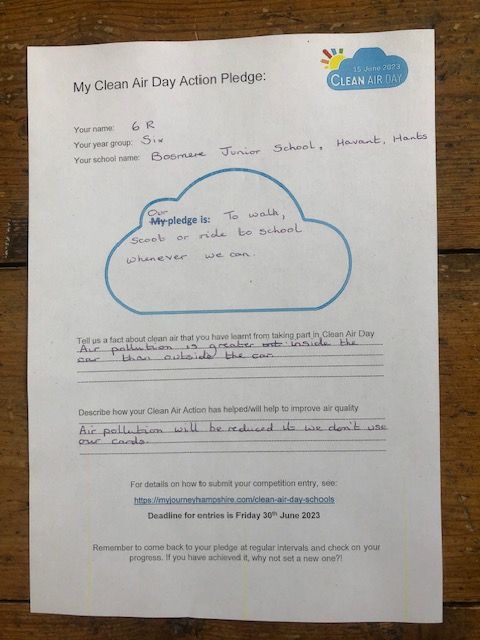 15 June 2023
CLEAN AIR DAY
My Clean Air Day Action Pledge:
Your name: 6R
Your year group: Six
Your school name: Bosmere Junior School, Havant, Hants
Our
My pledge is: To walk,
scoot or ride to school
whenever we can.
Tell us a fact about clean air that you have learnt from taking part in Clean Air Day
Air pollution is greater out inside the
car than outside the car
Describe how your Clean Air Action has helped/will help to improve air quality
Air pollution will be reduced if we don't use
our cards.
For details on how to submit your competition entry, see:
https://myjourneyhampshire.com/clean-air-day-schools
Deadline for entries is Friday 30th June 2023
Remember to come back to your pledge at regular intervals and check on your
progress. If you have achieved it, why not set a new one?!